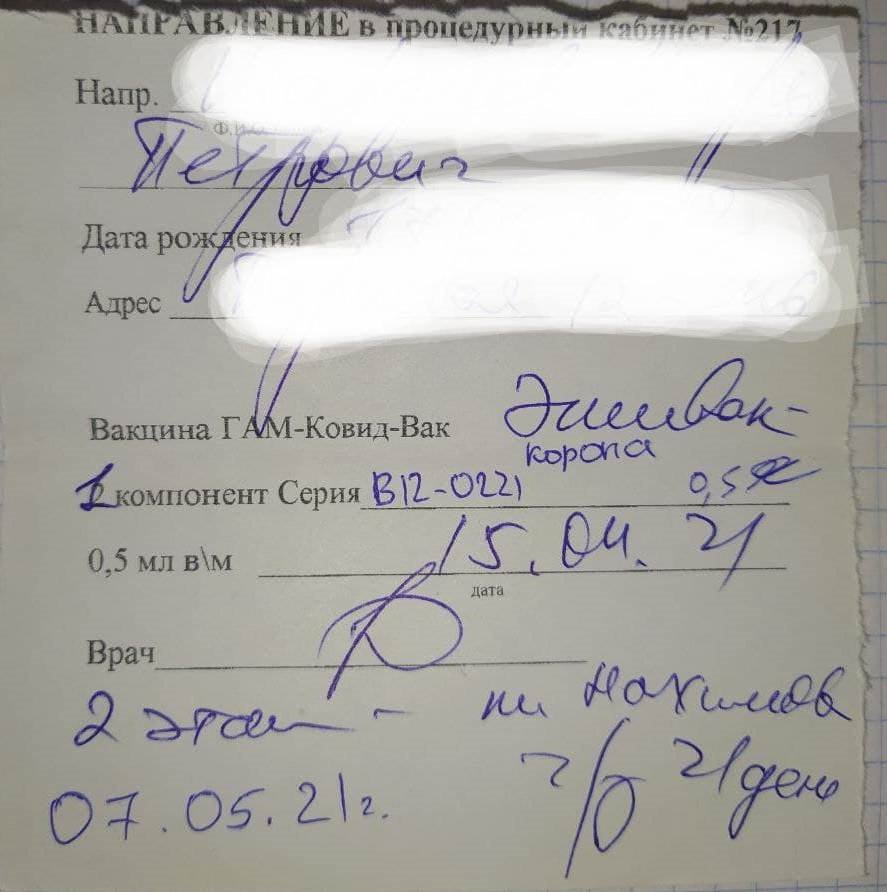 НАПРАВЛЕНИЕ в процедурный кабинет №217
Напр.
Ф.И.О.
Петрович
Дата рождения
Адрес
Вакцина ГАМ-Ковид-Вак ЭпиВак-
корона
1 компонент Серия В12-0221 0,5
0,5 мл в\м 15.04.21
дата
Врач
2 этап -
ч/з 21 день
07.05.21г.